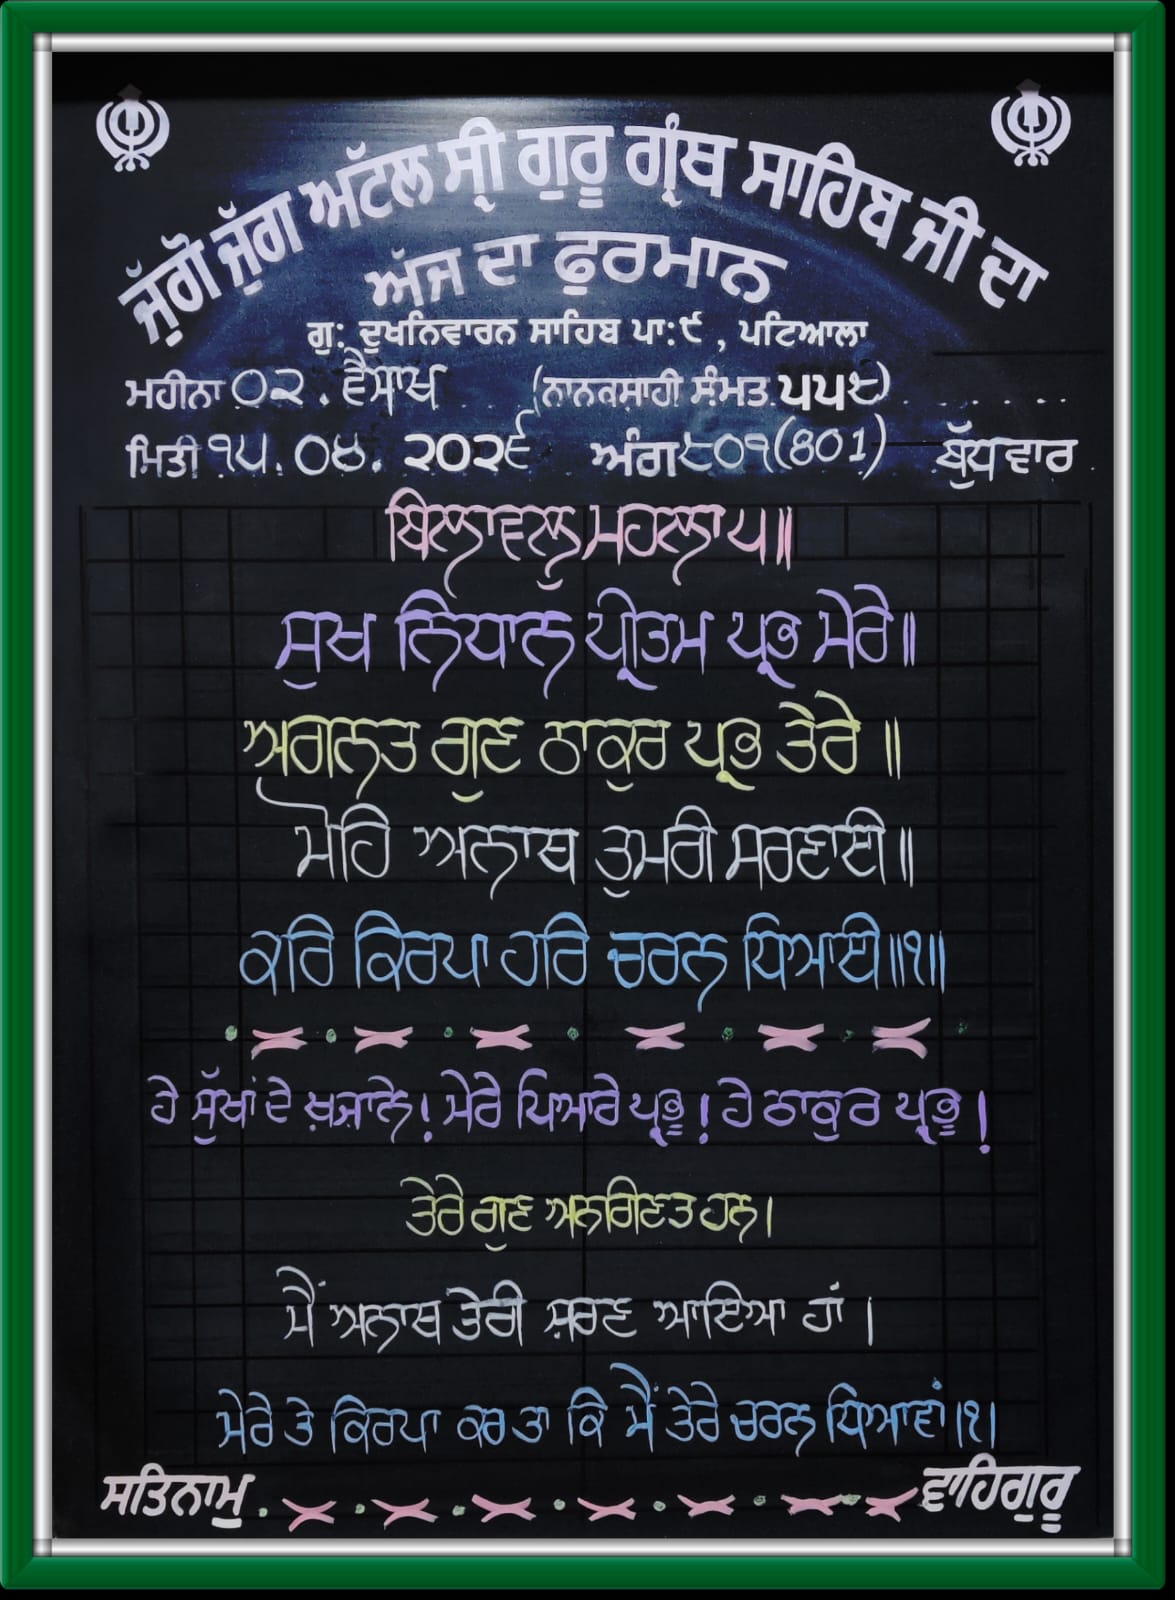 ਜੁੱਗੋ ਜੁੱਗ ਅਟੱਲ ਸ੍ਰੀ ਗੁਰੂ ਗ੍ਰੰਥ ਸਾਹਿਬ ਜੀ ਦਾ
ਅੱਜ ਦਾ ਫੁਰਮਾਨ
ਗੁ: ਦੁਖਨਿਵਾਰਨ ਸਾਹਿਬ ਪਾ:੯ , ਪਟਿਆਲਾ
ਮਹੀਨਾ ੦੨. ਵੈਸਾਖ (ਨਾਨਕਸ਼ਾਹੀ ਸੰਮਤ ੫੫੮)
ਮਿਤੀ ੧੫.੦੪.੨੦੨੬ ਅੰਗ ੮੦੧(801) ਬੁੱਧਵਾਰ
ਬਿਲਾਵਲੁ ਮਹਲਾ ੫॥
ਸੁਖ ਨਿਧਾਨ ਪ੍ਰੀਤਮ ਪ੍ਰਭ ਮੇਰੇ॥
ਅਗਨਤ ਗੁਣ ਠਾਕੁਰ ਪ੍ਰਭ ਤੇਰੇ ॥
ਮੋਹਿ ਅਨਾਥ ਤੁਮਰੀ ਸਰਣਾਈ॥
ਕਰਿ ਕਿਰਪਾ ਹਰਿ ਚਰਨ ਧਿਆਈ॥੧॥
ਹੇ ਸੁੱਖਾਂ ਦੇ ਖ਼ਜ਼ਾਨੇ! ਮੇਰੇ ਪਿਆਰੇ ਪ੍ਰਭੂ! ਹੇ ਠਾਕੁਰ ਪ੍ਰਭੂ!
ਤੇਰੇ ਗੁਣ ਅਨਗਿਣਤ ਹਨ।
ਮੈਂ ਅਨਾਥ ਤੇਰੀ ਸ਼ਰਣ ਆਇਆ ਹਾਂ।
ਮੇਰੇ ਤੇ ਕਿਰਪਾ ਕਰ ਤਾ ਕਿ ਮੈਂ ਤੇਰੇ ਚਰਨ ਧਿਆਵਾਂ।੧।
ਸਤਿਨਾਮੁ ਵਾਹਿਗੁਰੂ